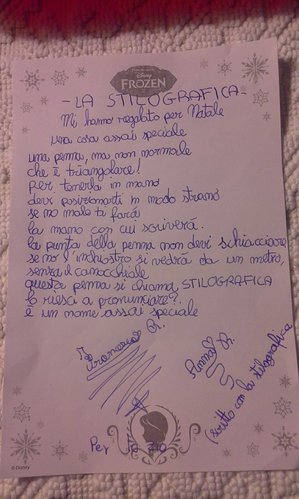 Disney
FROZEN
- LA STILOGRAFICA -
Mi hanno regalato per Natale
una cosa assai speciale
una penna, ma non normale
che è triangolare!
Per tenerla in mano
devi posizionarti in modo strano
se no male ti farà
la mano con cui scriverà.
la punta della penna non devi schiacciare
se no l'inchiostro si vedrà da un metro,
senza il cannocchiale
questa penna si chiama, STILOGRAFICA
Lo riesci a pronunciare?
è un nome assai speciale
Ch.
Anna Ch.
(scritto con la stilografica)
Per lo zio
©Disney